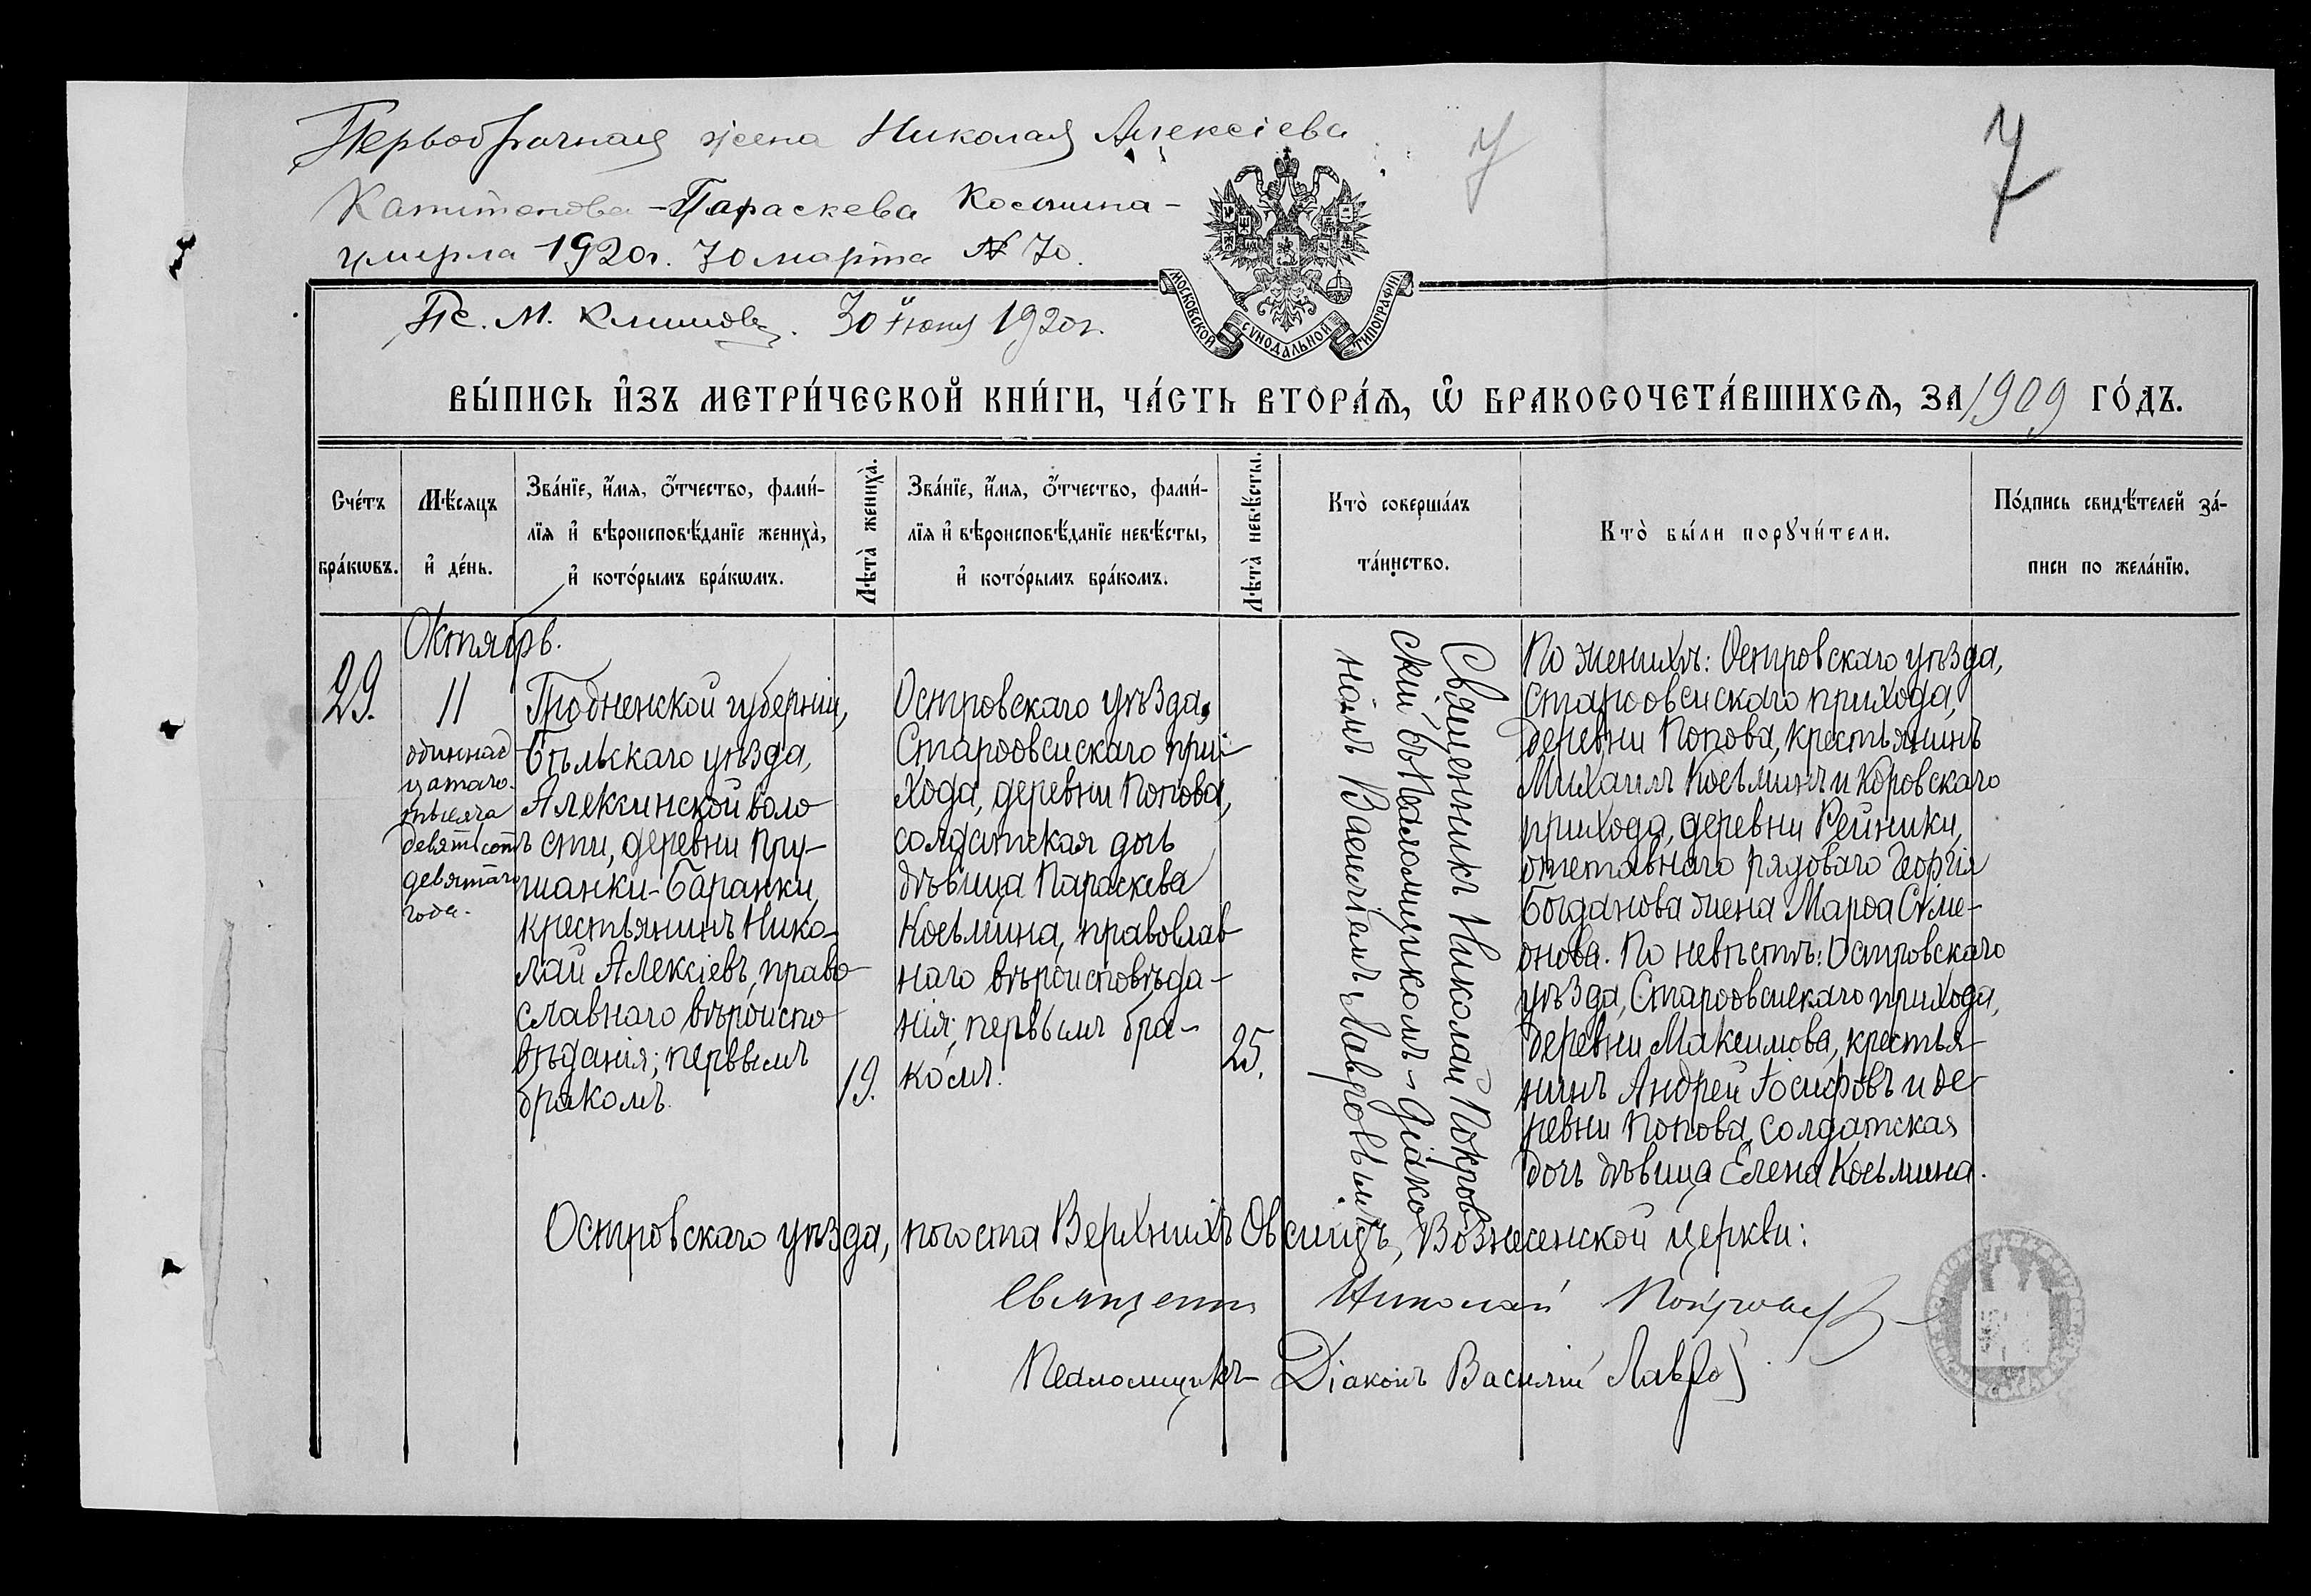 Первобрачная жена Николая Алексіева
Капитонова - Параскева Косьмина -
умерла 1920г. 30 марта № 70.
Пс. М. Климовъ. 30 Іюня 1920г.
7
МОСКОВСКОЙ СѴНОДАЛЬНОЙ ТИПОГРАФІИ
ВЫ́ПИСЬ И҆ЗЪ МЕТРИ́ЧЕСКОЙ КНИ́ГИ, ЧА́СТЬ ВТОРА́Ѧ, Ѡ҆ БРАКОСОЧЕТА́ВШИХСѦ, ЗА 1909 ГО́ДЪ.
Сче́тъ бра́кѡвъ.
Мѣ́сѧцъ и҆ де́нь.
Зва́нїе, и҆́мѧ, ѻ҆́тчество, фами́-
лїѧ и҆ вѣроисповѣ́данїе жениха̀,
и҆ кото́рымъ бра́кѡмъ.
Лѣта̀ жениха̀.
Зва́нїе, и҆́мѧ, ѻ҆́тчество, фами́-
лїѧ и҆ вѣроисповѣ́данїе невѣ́сты,
и҆ кото́рымъ бра́комъ.
Лѣта̀ невѣ́сты.
Кто̀ соверша́лъ
та́инство.
Кто̀ бы́ли порꙋчи́тели.
По́дпись свидѣ́телей за́-
писи по жела́нїю.
29.
Октябрь.
11
одиннад
цатаго.
тысяча
девятьсотъ
девятаго
года.
Гродненской губерніи,
Бѣльскаго уѣзда,
Алексинской воло
сти, деревни Пру-
шанки-Баранки,
крестьянинъ Нико-
лай Алексіевъ, право-
славнаго вѣроиспо
вѣданія; первымъ
бракомъ.
19.
Островскаго уѣзда,
Староовсискаго при-
хода, деревни Попова,
солдатская дочь
дѣвица Параскева
Косьмина, православ
наго вѣроисповѣда-
нія; первымъ бра-
комъ.
25.
Священникъ Николай Покров
скій съ Псаломщикомъ-Діако
номъ Василіемъ Лавровымъ
По женихѣ: Островскаго уѣзда,
Староовсискаго прихода,
деревни Попова, крестьянинъ
Михаилъ Косьминъ и Коровскаго
прихода, деревни Рейники,
отставнаго рядоваго Георгія
Богданова жена Марѳа Симе-
онова. По невѣстѣ: Островскаго
уѣзда, Староовсискаго прихода,
деревни Максимова, крестья-
нинъ Андрей Іосифовъ и де-
ревни Попова, солдатская
дочь дѣвица Елена Косьмина.
Островскаго уѣзда, погоста Верхнихъ Овсищъ, Вознесенской церкви:
Священникъ Николай Покровскій
Псаломщикъ - Діаконъ Василій Лавровъ